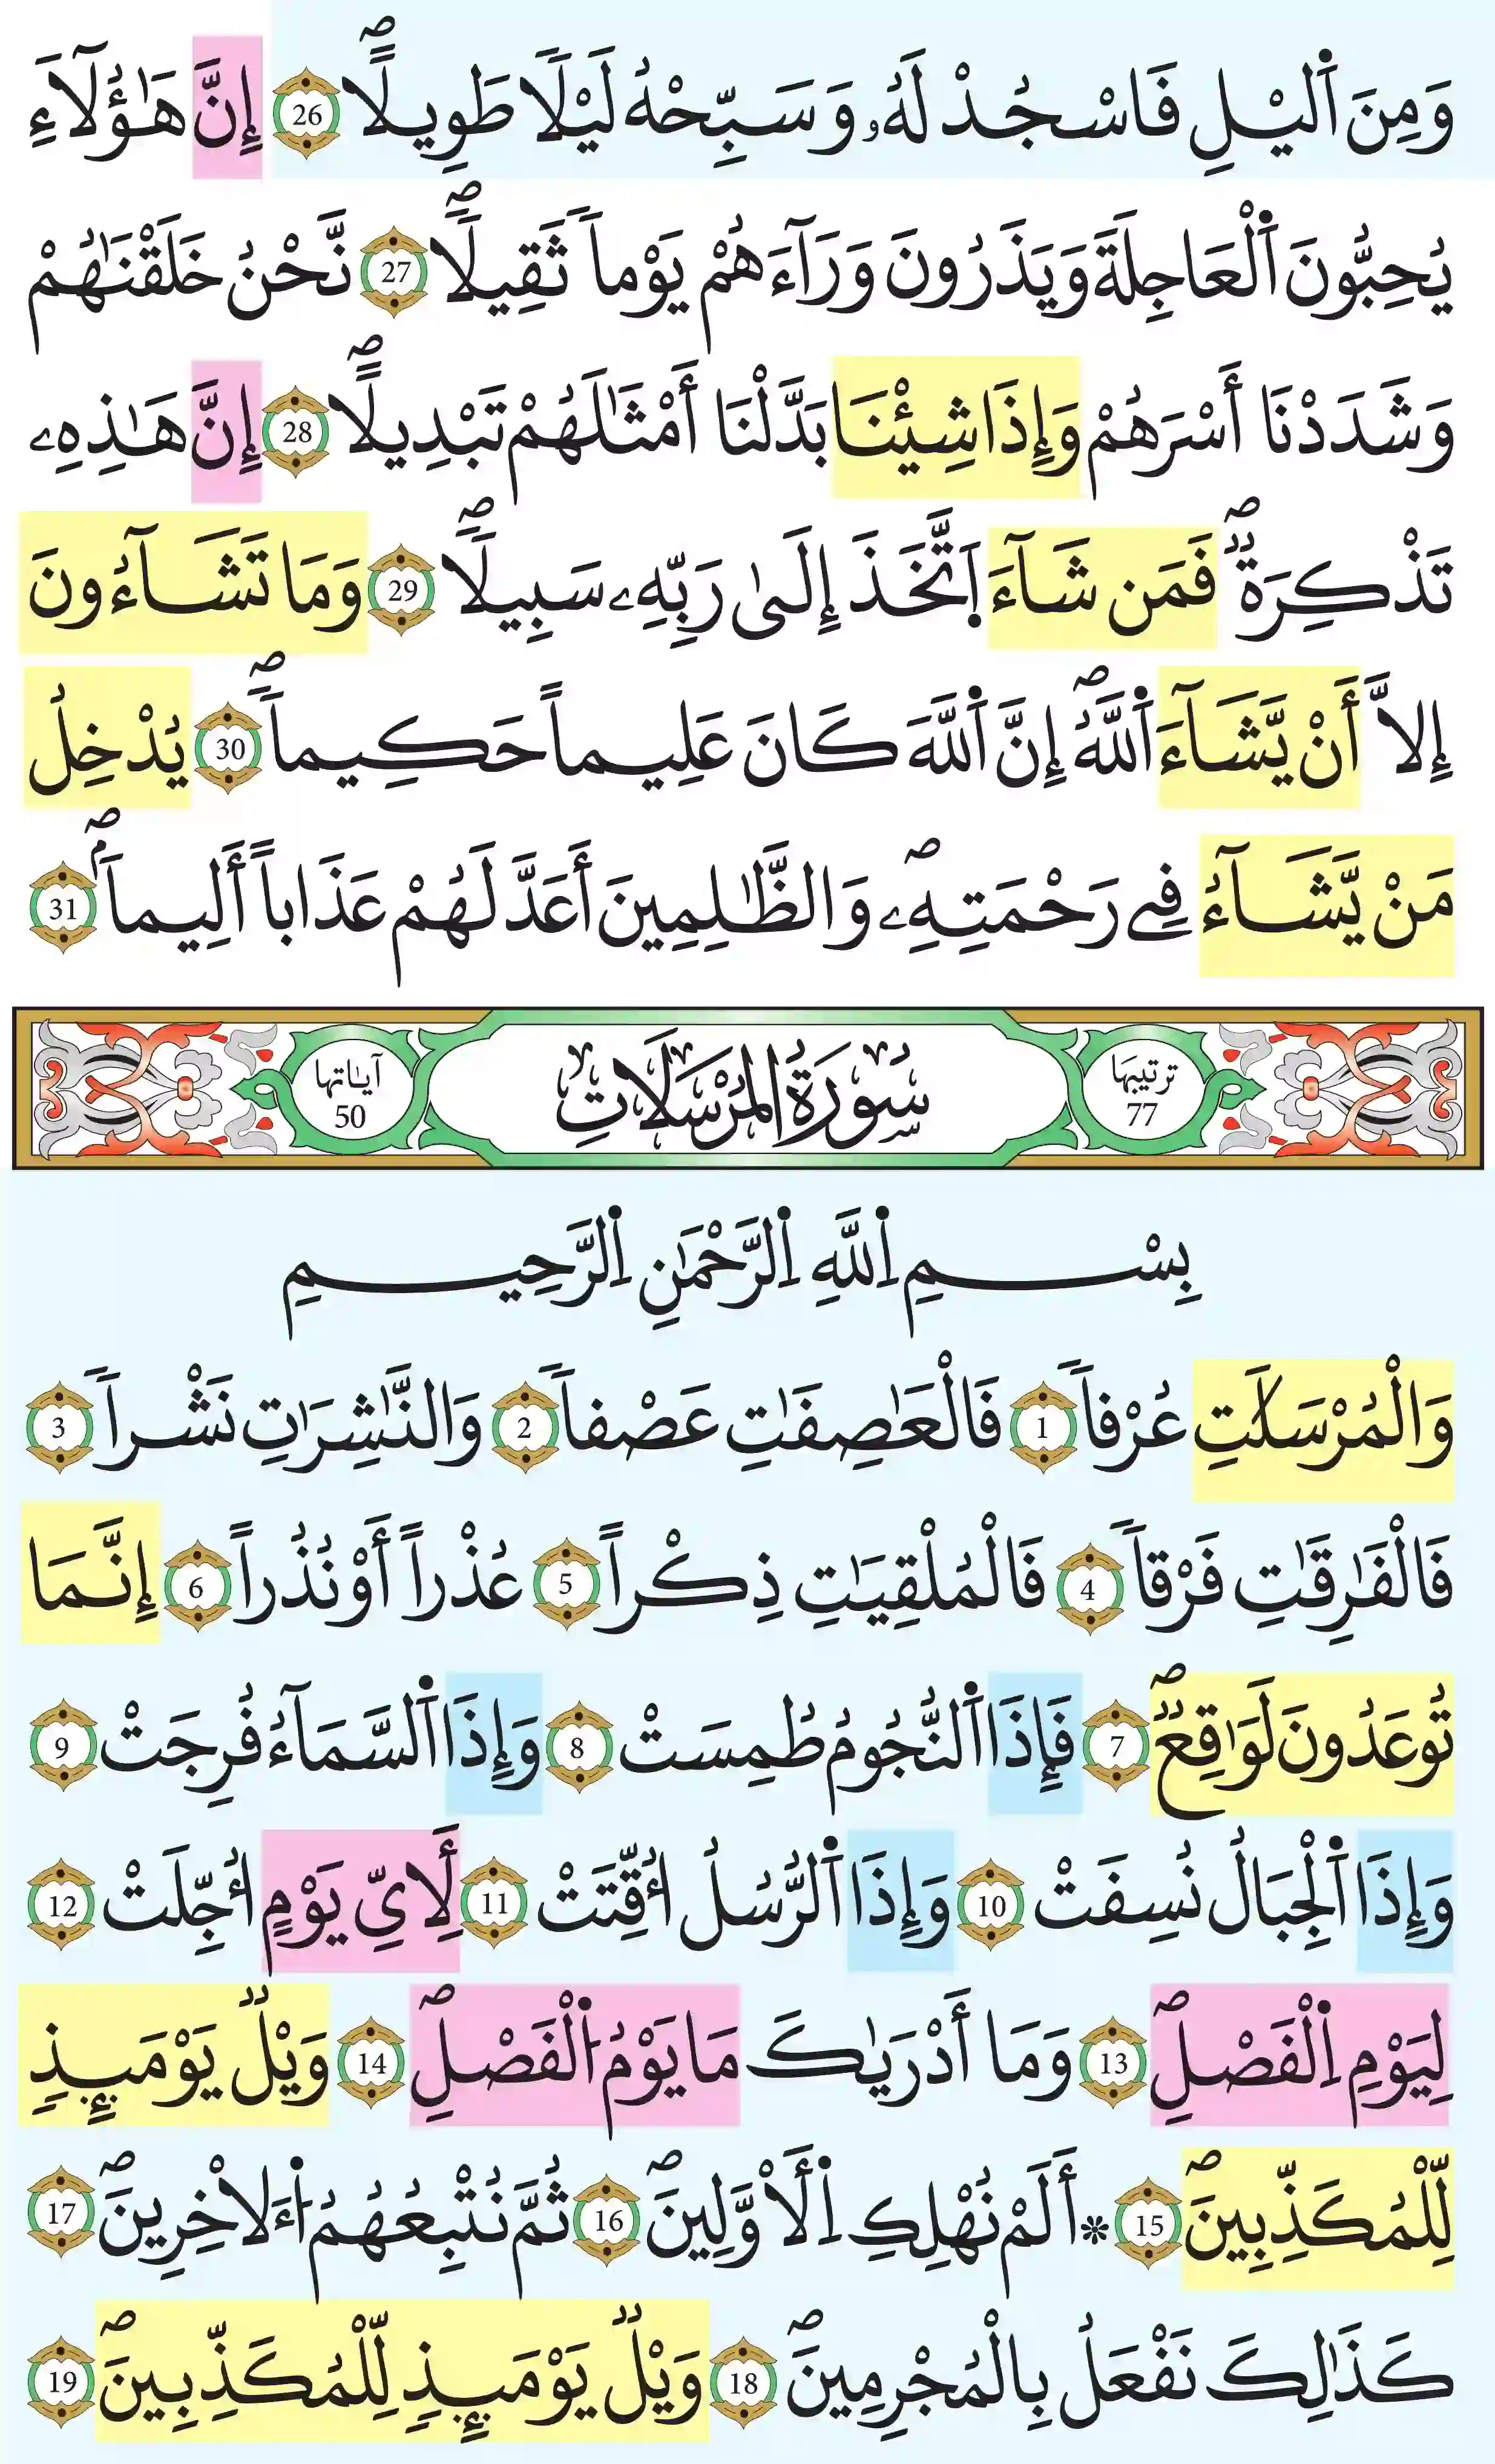 وَمِنَ اَ۬ليْلِ فَاسْجُدْ لَهُۥ وَسَبِّحْهُ لَيْلاٗ طَوِيلاًۖ 26 إِنَّ هَٰؤُلَآءِ
يُحِبُّونَ اَ۬لْعَاجِلَةَ وَيَذَرُونَ وَرَآءَهُمْ يَوْماٗ ثَقِيلاٗۖ 27 نَّحْنُ خَلَقْنَٰهُمْ
وَشَدَدْنَا أَسْرَهُمْ وَإِذَا شِئْنَا بَدَّلْنَا أَمْثَٰلَهُمْ تَبْدِيلاًۖ 28 إِنَّ هَٰذِهِۦ
تَذْكِرَةٞۖ فَمَن شَآءَ اَ۪تَّخَذَ إِلَىٰ رَبِّهِۦ سَبِيلاٗۖ 29 وَمَا تَشَآءُونَ
إِلاَّ أَنْ يَّشَآءَ اَ۬للَّهُۖ إِنَّ اَ۬للَّهَ كَانَ عَلِيماً حَكِيماٗۖ 30 يُدْخِلُ
مَنْ يَّشَآءُ فِے رَحْمَتِهِۦۖ وَالظَّٰلِمِينَ أَعَدَّ لَهُمْ عَذَاباً أَلِيماَۢۖ 31
ترتيبها 77
سُورَةُ المُرْسَلَاتِ
آياتها 50
بِسْمِ اِ۬للَّهِ اِ۬لرَّحْمَٰنِ اِ۬لرَّحِيمِ
وَالْمُرْسَلَٰتِ عُرْفاٗ 1 فَالْعَٰصِفَٰتِ عَصْفاٗ 2 وَالنَّٰشِرَٰتِ نَشْراٗ 3
فَالْفَٰرِقَٰتِ فَرْقاٗ 4 فَالْمُلْقِيَٰتِ ذِكْراً 5 عُذْراً أَوْ نُذُراً 6 إِنَّمَا
تُوعَدُونَ لَوَٰقِعٞۖ 7 فَإِذَا اَ۬لنُّجُومُ طُمِسَتْ 8 وَإِذَا اَ۬لسَّمَآءُ فُرِجَتْ 9
وَإِذَا اَ۬لْجِبَالُ نُسِفَتْ 10 وَإِذَا اَ۬لرُّسُلُ أُقِّتَتْ 11 لِأَيِّ يَوْمٍ أُجِّلَتْ 12
لِيَوْمِ اِ۬لْفَصْلِۖ 13 وَمَا أَدْرَيٰكَ مَا يَوْمُ اُ۬لْفَصْلِۖ 14 وَيْلٞ يَوْمَئِذٖ
لِّلْمُكَذِّبِينَۖ 15 ۞ أَلَمْ نُهْلِكِ اِ۬لْأَوَّلِينَۖ 16 ثُمَّ نُتْبِعُهُمُ اُ۬لَاخِرِينَۖ 17
كَذَٰلِكَ نَفْعَلُ بِالْمُجْرِمِينَۖ 18 وَيْلٞ يَوْمَئِذٖ لِّلْمُكَذِّبِينَۖ 19